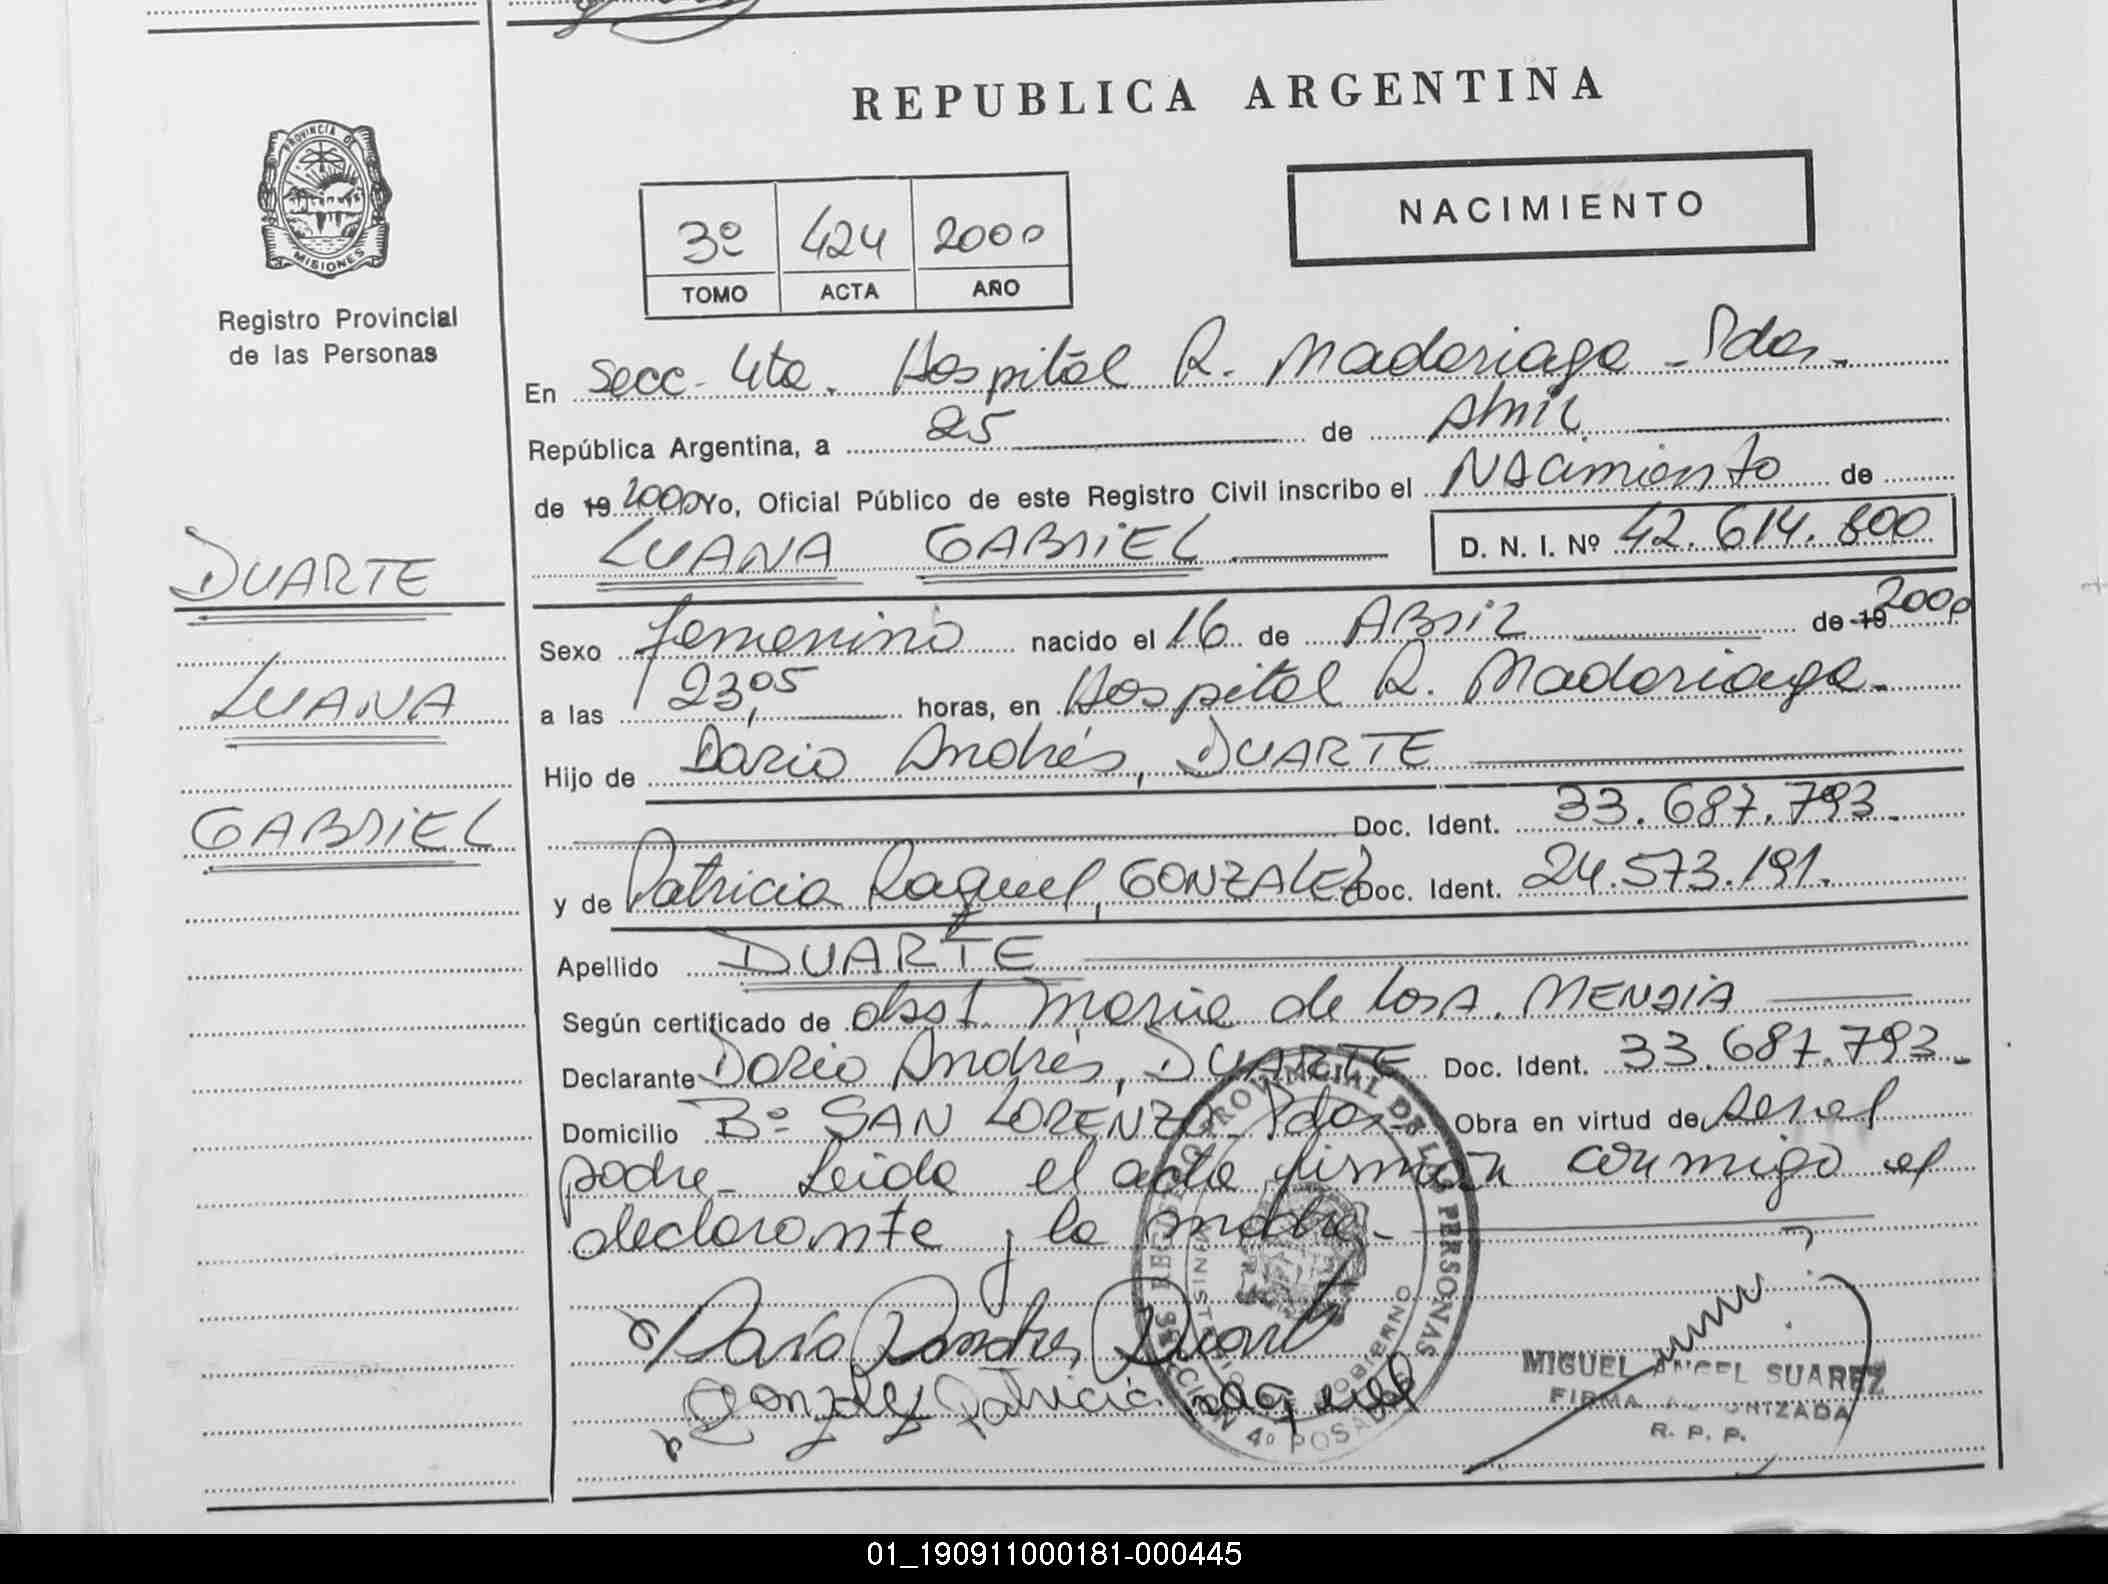 REPUBLICA ARGENTINA
PROVINCIA DE MISIONES
Registro Provincial
de las Personas
3º 424 2000
TOMO ACTA AÑO
NACIMIENTO
En Secc. 4ta. Hospital R. Madariaga - Pdas.
República Argentina, a 25 de Abril
de 19 2000 Yo, Oficial Público de este Registro Civil inscribo el Nacimiento de
LUANA GABRIEL D. N. I. Nº 42.614.800
DUARTE
LUANA
GABRIEL
Sexo femenino nacido el 16 de ABRIL de 19 2000
a las 23,05 horas, en Hospital R. Madariaga.
Hijo de Dario Andrés, DUARTE
Doc. Ident. 33.687.793.
y de Patricia Raquel, GONZALEZ Doc. Ident. 24.573.191.
Apellido DUARTE
Según certificado de obst. Maria de los A. MENDIA
Declarante Dario Andrés, DUARTE Doc. Ident. 33.687.793.
Domicilio Bº SAN LORENZO - Pdas - Obra en virtud de ser el
padre - Leida el acta firman conmigo el
declarante y la madre.
Dario Andres Duarte
Gonzalez Patricia Raquel
REGISTRO PROVINCIAL DE LAS PERSONAS
MINISTERIO DE GOBIERNO
SECCION 4º POSADAS
MIGUEL ANGEL SUAREZ
FIRMA AUTORIZADA
R. P. P.
01_190911000181-000445